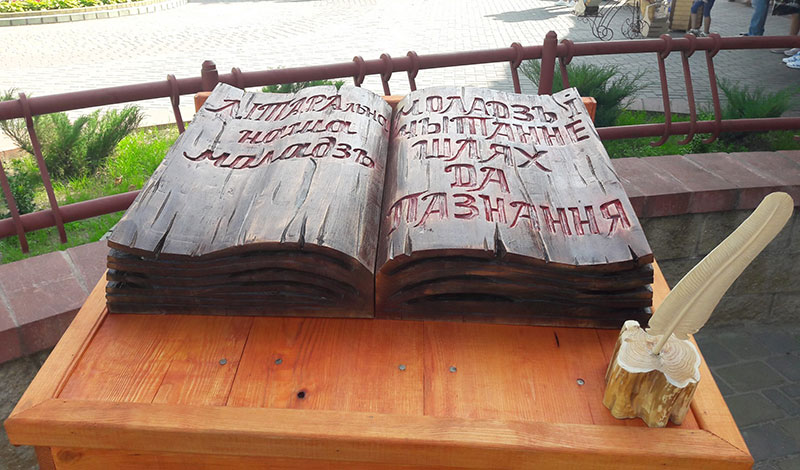 ЛІТАРАльна
наша
маладзь
МОЛАДЗЬ І
ЧЫТАННЕ
ШЛЯХ
ДА
ПАЗНАННЯ